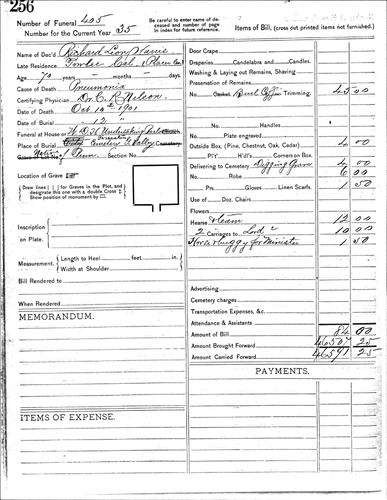 256
Number of Funeral 405
Number for the Current Year 35
Be careful to enter name of deceased and number of page in index for future reference.
Name of Dec'd Richard Harris
Late Residence Cal.
Age, 70 years - months - days.
Cause of Death Pneumonia
Certifying Physician Dr. C. R. Nelson.
Date of Death Oct 1901
Date of Burial 12 "
Funeral at House or
Place of Burial Cemetery Valley Cemetery.
Grave Section No.
Location of Grave
Draw lines for Graves in the Plot, and designate this one with a double Cross
Show position of monument by
Inscription on Plate.
Measurement. Length to Heel feet in.
Width at Shoulder
Bill Rendered to
When Rendered
MEMORANDUM.
ITEMS OF EXPENSE.
Items of Bill, (cross out printed items not furnished.)
Door Crape
Draperies Candelabra and Candles.
Washing & Laying out Remains, Shaving
Preservation of Remains.
No. Casket Burl Coffin Trimming. 45 00
No. Handles
Plate engraved
Outside Box, (Pine, Chestnut, Oak, Cedar) 4 00
P'l'y H'd'l's Corners on Box.
Delivering to Cemetery Digging Grave 4 00
No. Robe 6 00
Prs. Gloves Linen Scarfs. 1 50
Use of Doz. Chairs
Flowers
Hearse 12 00
2 Carriages to 10 00
Horse & buggy for Minister 1 50
Advertising
Cemetery charges
Transportation Expenses, &c.
Attendance & Assistants
Amount of Bill 84 00
Amount Brought Forward 46507 25
Amount Carried Forward 46591 25
PAYMENTS.